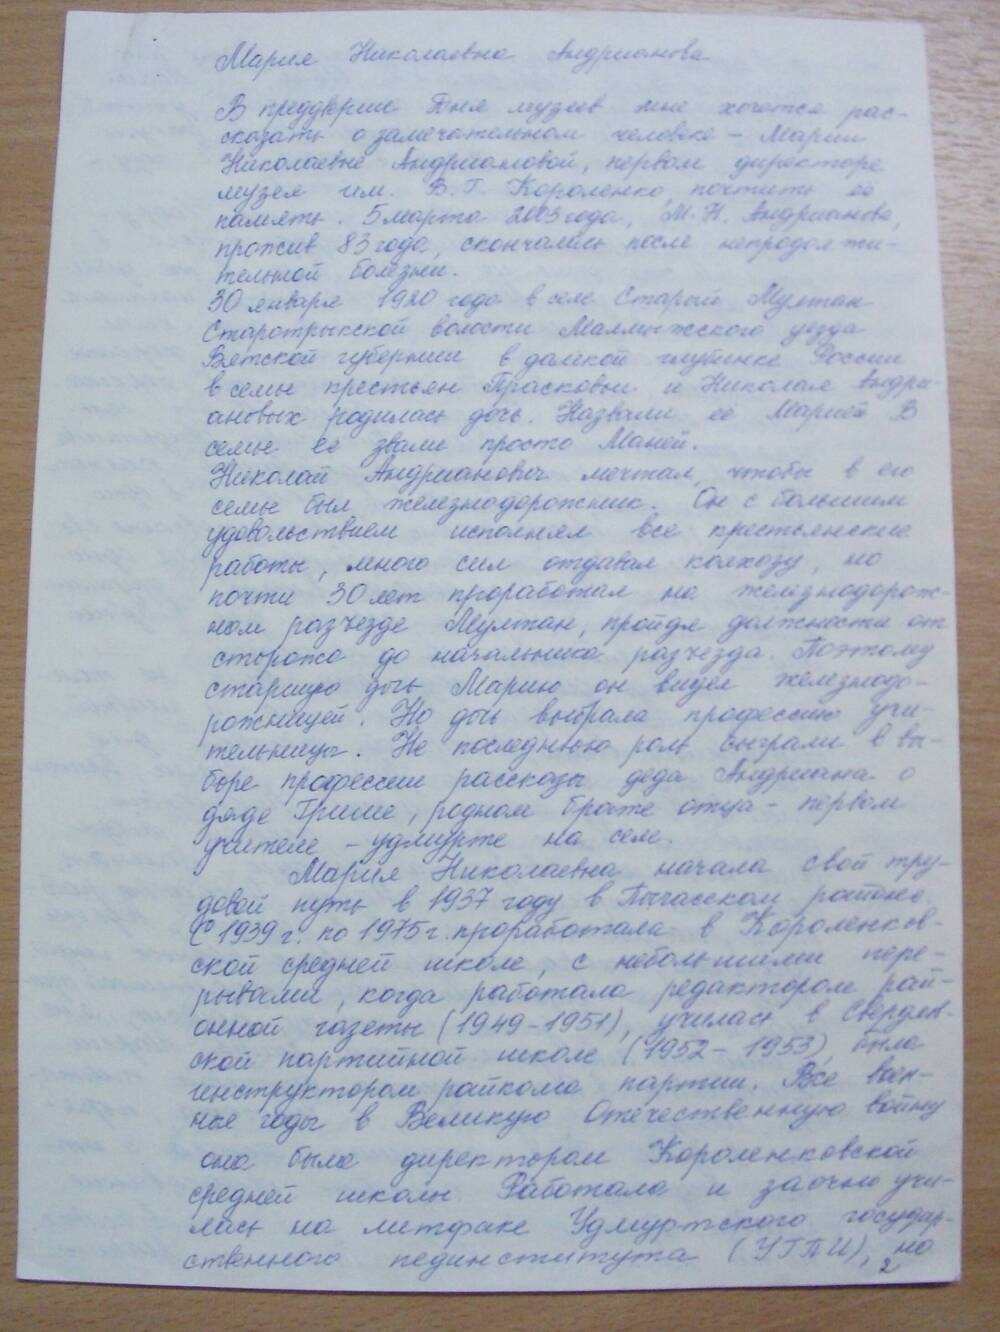 Мария Николаевна Андрианова
В преддверии Дня музеев мне хочется рас-
сказать о замечательном человеке – Марии
Николаевне Андриановой, первом директоре
музея им. В. Г. Короленко, почтить её
память. 5 марта 2003 года, М. Н. Андрианова,
прожив 83 года, скончалась после непродолжи-
тельной болезни.
30 января 1920 года в селе Старый Мултан
Старотрыкской волости Малмыжского уезда
Вятской губернии в далёкой глубинке России
в семье крестьян Прасковьи и Николая Андри-
ановых родилась дочь. Назвали её Марией В
семье её звали просто Маней.
Николай Андрианович мечтал, чтобы в его
семье был железнодорожник. Он с большим
удовольствием исполнял все крестьянские
работы, много сил отдавал колхозу, но
почти 30 лет проработал на железнодорож-
ном разъезде Мултан, пройдя должности от
сторожа до начальника разъезда. Поэтому
старшую дочь Марию он видел железнодо-
рожницей. Но дочь выбрала профессию учи-
тельницы. Не последнюю роль сыграли в вы-
боре профессии рассказы деда Андриана о
дяде Грише, родном брате отца – первом
учителе – удмурте на селе.
Мария Николаевна начала свой тру-
довой путь в 1937 году в Пычасском районе.
С 1939 г. по 1975 г. проработала в Короленков-
ской средней школе, с небольшими пере-
рывами, когда работала редактором рай-
онной газеты (1949-1951), училась в Свердлов-
ской партийной школе (1952 – 1953), была
инструктором райкома партии. Все воен-
ные годы в Великую Отечественную войну
она была директором Короленковской
средней школы Работала и заочно учи-
лась на литфаке Удмуртского государ-
ственного пединститута (УГПИ), но
2